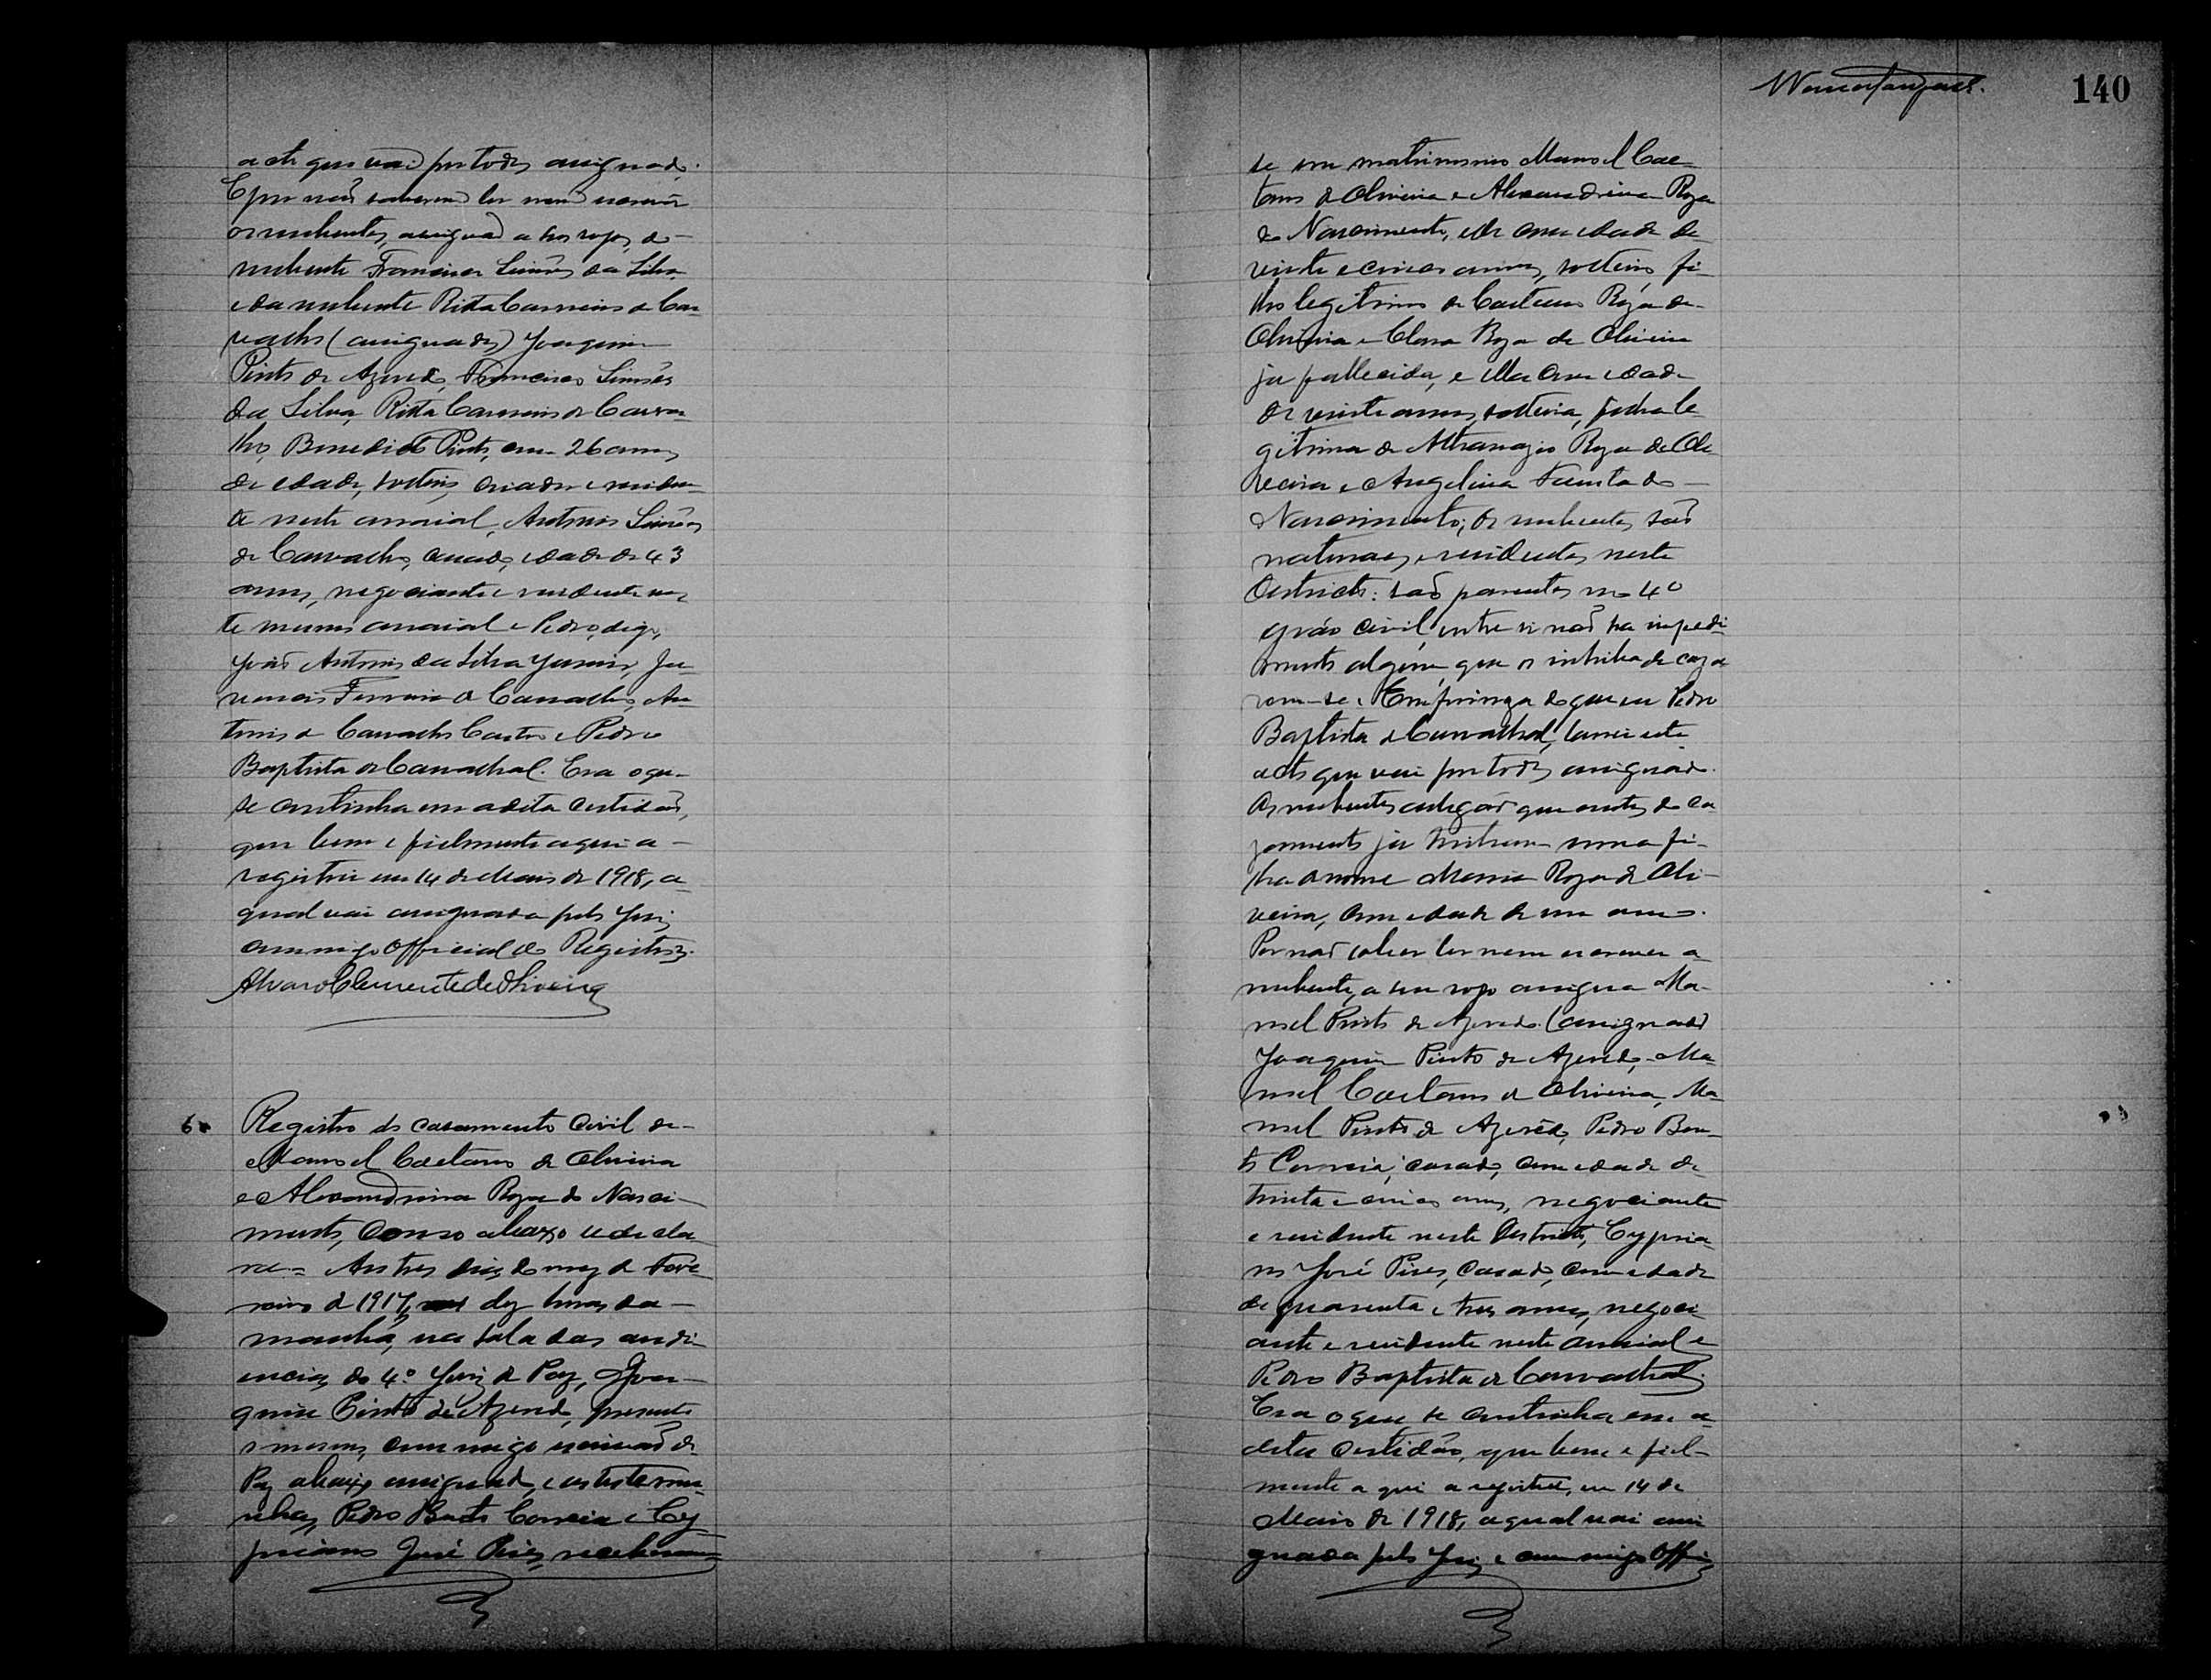 acto que vai por todos assignado.
E por não saberem ler nem escrever
os nubentes, assignad a seos rogos, do
nubente Francisco Simões da Silva
e da nubente Rita Carneiro de Car-
valho (assignados) Joaquim
Pinto de Azeredo, Francisco Simões
da Silva, Rita Carneiro de Carva-
lho, Benedicto Pinto, com 26 annos
de edade, solteiro, criador e residen-
te neste arraial, Antonio Simões
de Carvalho, casado, edade de 43
annos, negociante e residente nes-
te mesmo arraial e Pedro, digo,
João Antonio da Silva Junior, Ju-
vencio Ferreira de Carvalho, An-
tonio de Carvalho Castro e Pedro
Baptista de Carvalhal. Era o que
se continha em a dita certidão,
que bem e fielmente aqui a
registrei em 14 de Maio de 1918, a
qual vai assignada pelo Juiz
commigo Official do Registro.
Alvaro Clemente de Oliveira
60 Registro do casamento Civil de
Manoel Caetano de Oliveira
e Alexandrina Roza do Nasci-
mento, como abaixo se decla-
ra = Aos tres dias do mez de Feve-
reiro de 1917, dez horas da
manhã, na sala das audi-
encias do 4º Juiz de Paz, Joa-
quim Pinto de Azeredo, presente
o mesmo, commigo escrivão de
Paz abaixo assignado, e as testemu-
nhas, Pedro Bento Correia e Cy-
priano José Pires, receberam-
140
se em matrimonio Manoel Cae-
tano de Oliveira e Alexandrina Roza
do Nascimento, elle com edade de
vinte e cinco annos, solteiro, fi-
lho legitimo de Caetano Roza de
Oliveira e Clara Roza de Oliveira
ja fallecida, e ella com edade
de vinte annos, solteira, filha le-
gitima de Athanazio Roza de Oli-
veira e Angelina Fausta do
Nascimento; os nubentes são
naturaes e residentes neste
Districto: são parentes no 4º
gráo civil, entre si não ha impedi-
mento algum que os inhiba de caza-
rem-se. Em firmeza do que eu Pedro
Baptista de Carvalhal, lavrei este
acto que vai por todos assignado.
Os nubentes que antes do ca-
zamento ja tinham uma fi-
lha de nome Maria Roza de Oli-
veira, com edade de um anno.
Por não saber ler nem escrever a
nubente, a seu rogo assigna Ma-
noel Pinto de Azeredo. (assignados)
Joaquim Pinto de Azeredo, Ma-
noel Caetano de Oliveira, Ma-
noel Pinto de Azerêdo, Pedro Ben-
to Correia, casado, com edade de
trinta e cinco annos, negociante
e residente neste Districto, Cypria-
no José Pires, casado, com edade
de quarenta e tres annos, negoci-
ante e residente neste arraial e
Pedro Baptista de Carvalhal.
Era o que se continha em a
dita certidão, que bem e fiel-
mente a qui a registrei, em 14 de
Maio de 1918, a qual vai assi-
gnada pelo Juiz e commigo Offi-